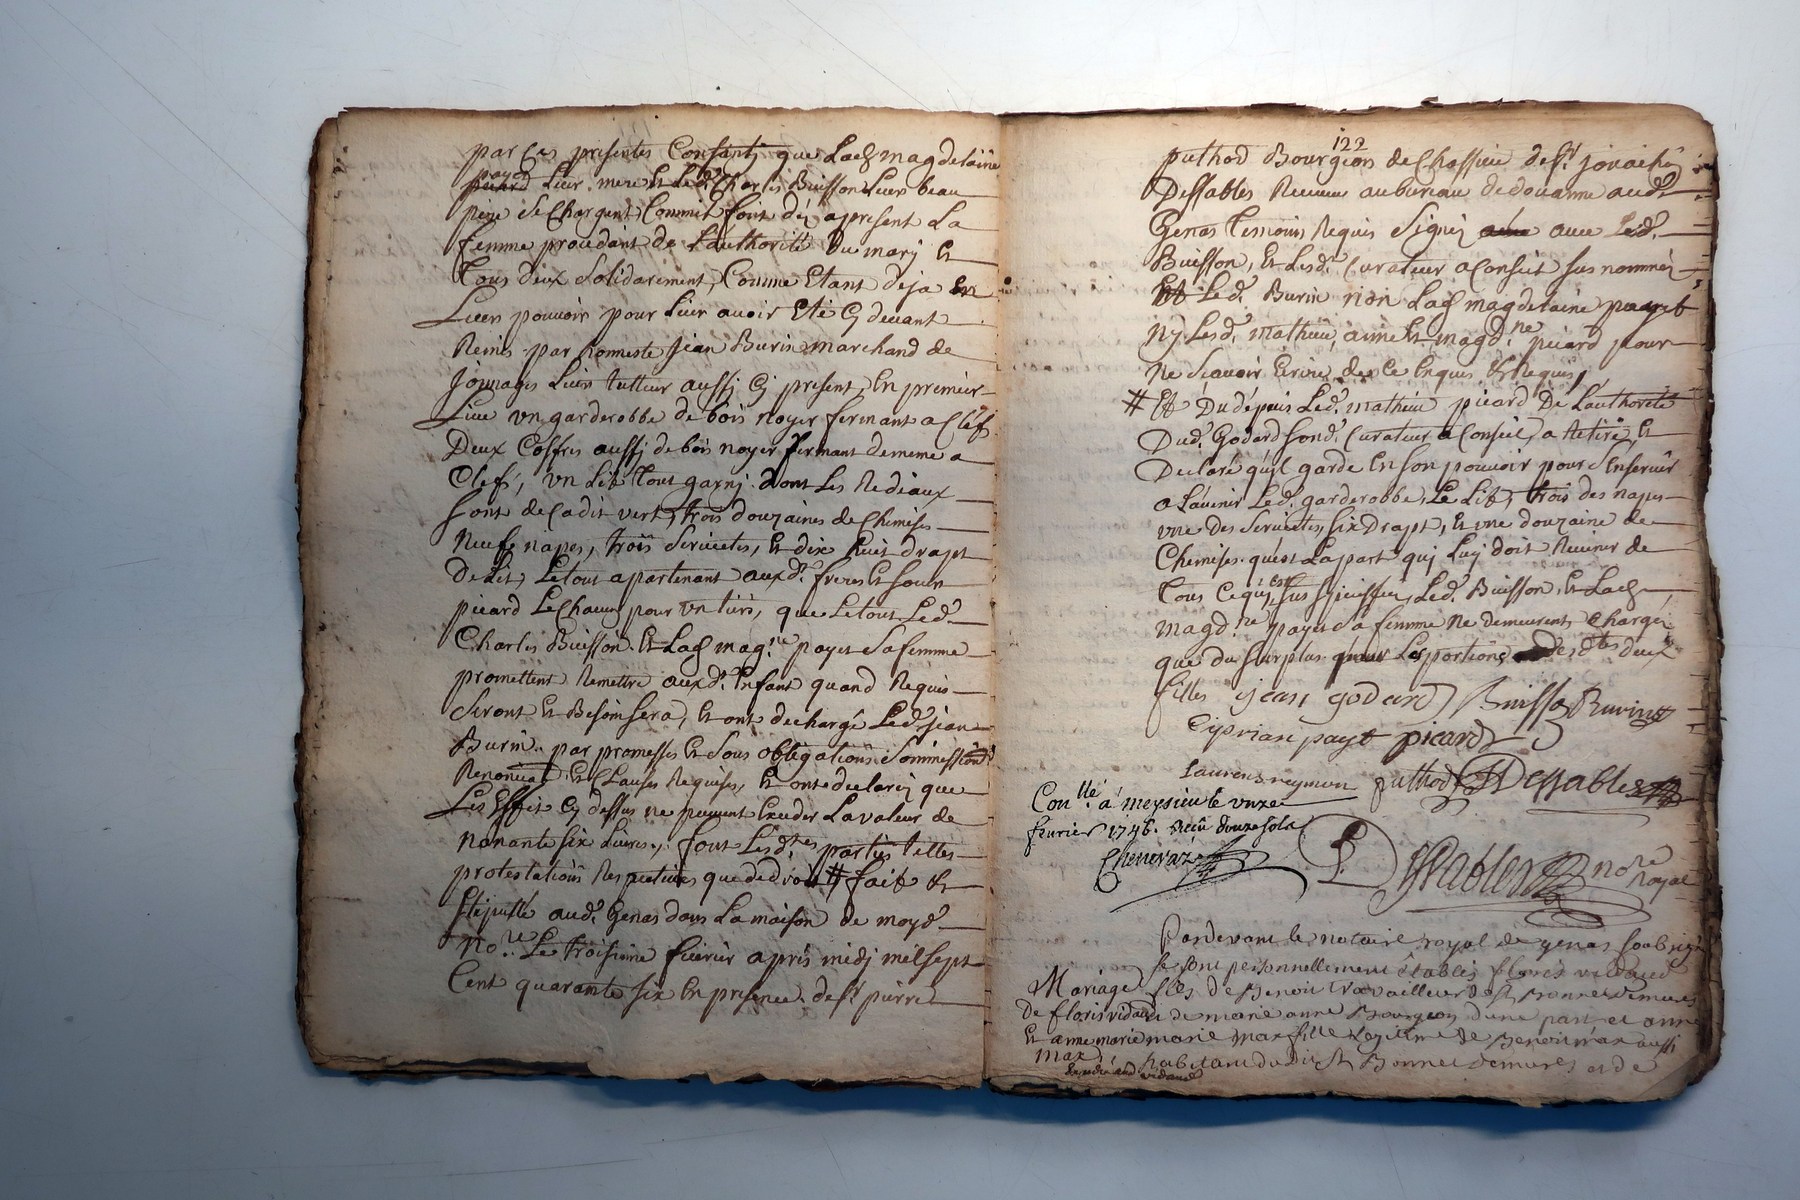 par Ces presentes Consantj que Lad magdelaine
payet Leur mere Et Led. Charles Buisson Leur beau
pere se Chargent Comme font dés apresent La
femme procedant de Lauthorité Du marj Et
Tous deux solidairement, Comme Etant deja En
Leur pouvoir pour Leur avoir Eté Cy devant
Remis par honneste Jean Burin marchand de
Jonnages Leur tutteur aussj Cj present, En premier
Lieu un garderobbe de bois noyer fermant a Clef
Deux Coffres aussj de bois noyer fermant dememe a
Clef, un Lit Tout garnj dont Les Rediaux
sont de Cadit vert, trois douzaines de Chemises
neuf napes, trois serviettes, Et dix huit drapt
De Lit, Le tout apartenant auxd. freres Et soeur
picard Le Chacun pour un tiers, que Le tout Led.
Charles Buisson Et Lad mag.ne payet sa femme
promettent Remettre auxd. Enfant quand Requis
seront Et Besoin sera, Et ont dechargé Led. jean
Burin par promesses Et sous obligations somission
Renonciat Et Clauses Requises, Et ont declaré que
Les Effet Cy dessus ne peuvent Exceder La valeur de
nonante six Livres, font Lesd.tes parties telles
protestations Respectives que de droit # fait Et
stipullé aud. Genas dans La maison de moyd.
no.re Le troisieme fevrier aprés midj mil sept
Cent quarante six En presence de sr pierre
122
puthod Bourgeois de Chassieu de sr joachin
Dessables Receveur au bureau de douanne aud
Genas Temoins Requis signés avec Led.
Buisson, Et Lesd. Curateur a Conseil sus nommés
Et Led. Burin non Lad magdelaine payet
nj Lesd. mathieu, anne Et magd.ne picard pour
ne sçavoir Ecrire de Ce Enquis Et Requis
# Et Du dépuis Led. mathieu picard De Lauthorité
Dud. Godard sond. Curateur a Conseil, a Retiré, Et
Declaré qu'jl garde En son pouvoir pour s'En servir
a L'avenir Led. garderobbe, Le Lit, trois des napes
une Des serviettes, six Drapt, Et une douzaine de
Chemises qu'est La part quj Luj doit Revenir de
Tous Ce quj Est sus specifié, Led. Buisson, Et Lad
magd.ne payet sa femme ne demeurent Chargés
que du surplus pour Les portions desd.tes deux
filles jean godard Buisson Burin
Ciprian payt picard
Laurens reymon puthod Dessables
Con.llé a meysieu le unze
fevrier 1746. Receu douze sols
Cheneraz
Dessables no.re royal
Pardevant le notaire royal de genas soubsigné
se sont personnellement établis floris vidaud
Mariage
De floris vidaud
Et anne marie
max
fils de Benoit travailleur de st Bonnet demures
et de marie anne Bourgeon d'une part et anne
marie max fille Legitime de Benoit max aussi
habitant dudit st Bonnet demures et de